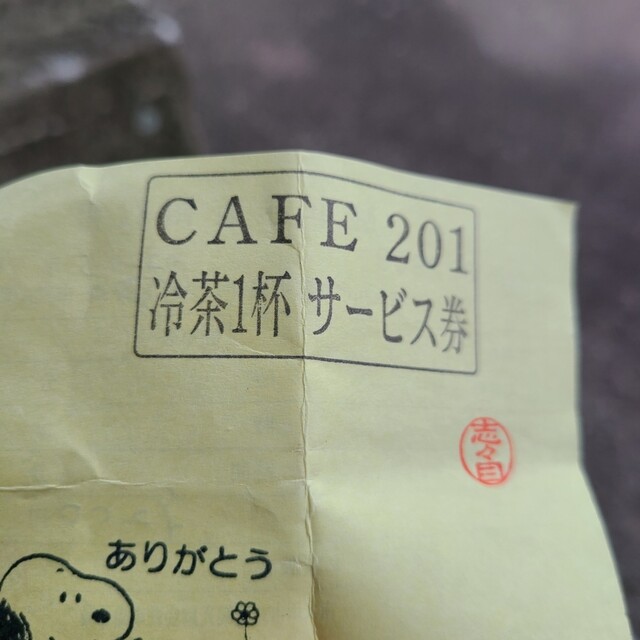 CAFE 201
冷茶1杯 サービス券
志々目
ありがとう